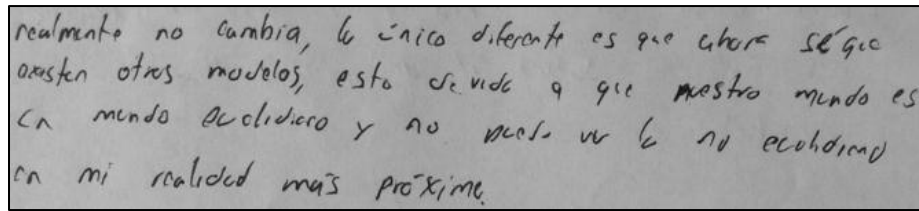 realmente no cambia, lo único diferente es que ahora sé que
existen otros modelos, esto devido a que nuestro mundo es
un mundo euclidiano y no puedo ver lo no euclidiano
en mi realidad más próxima.